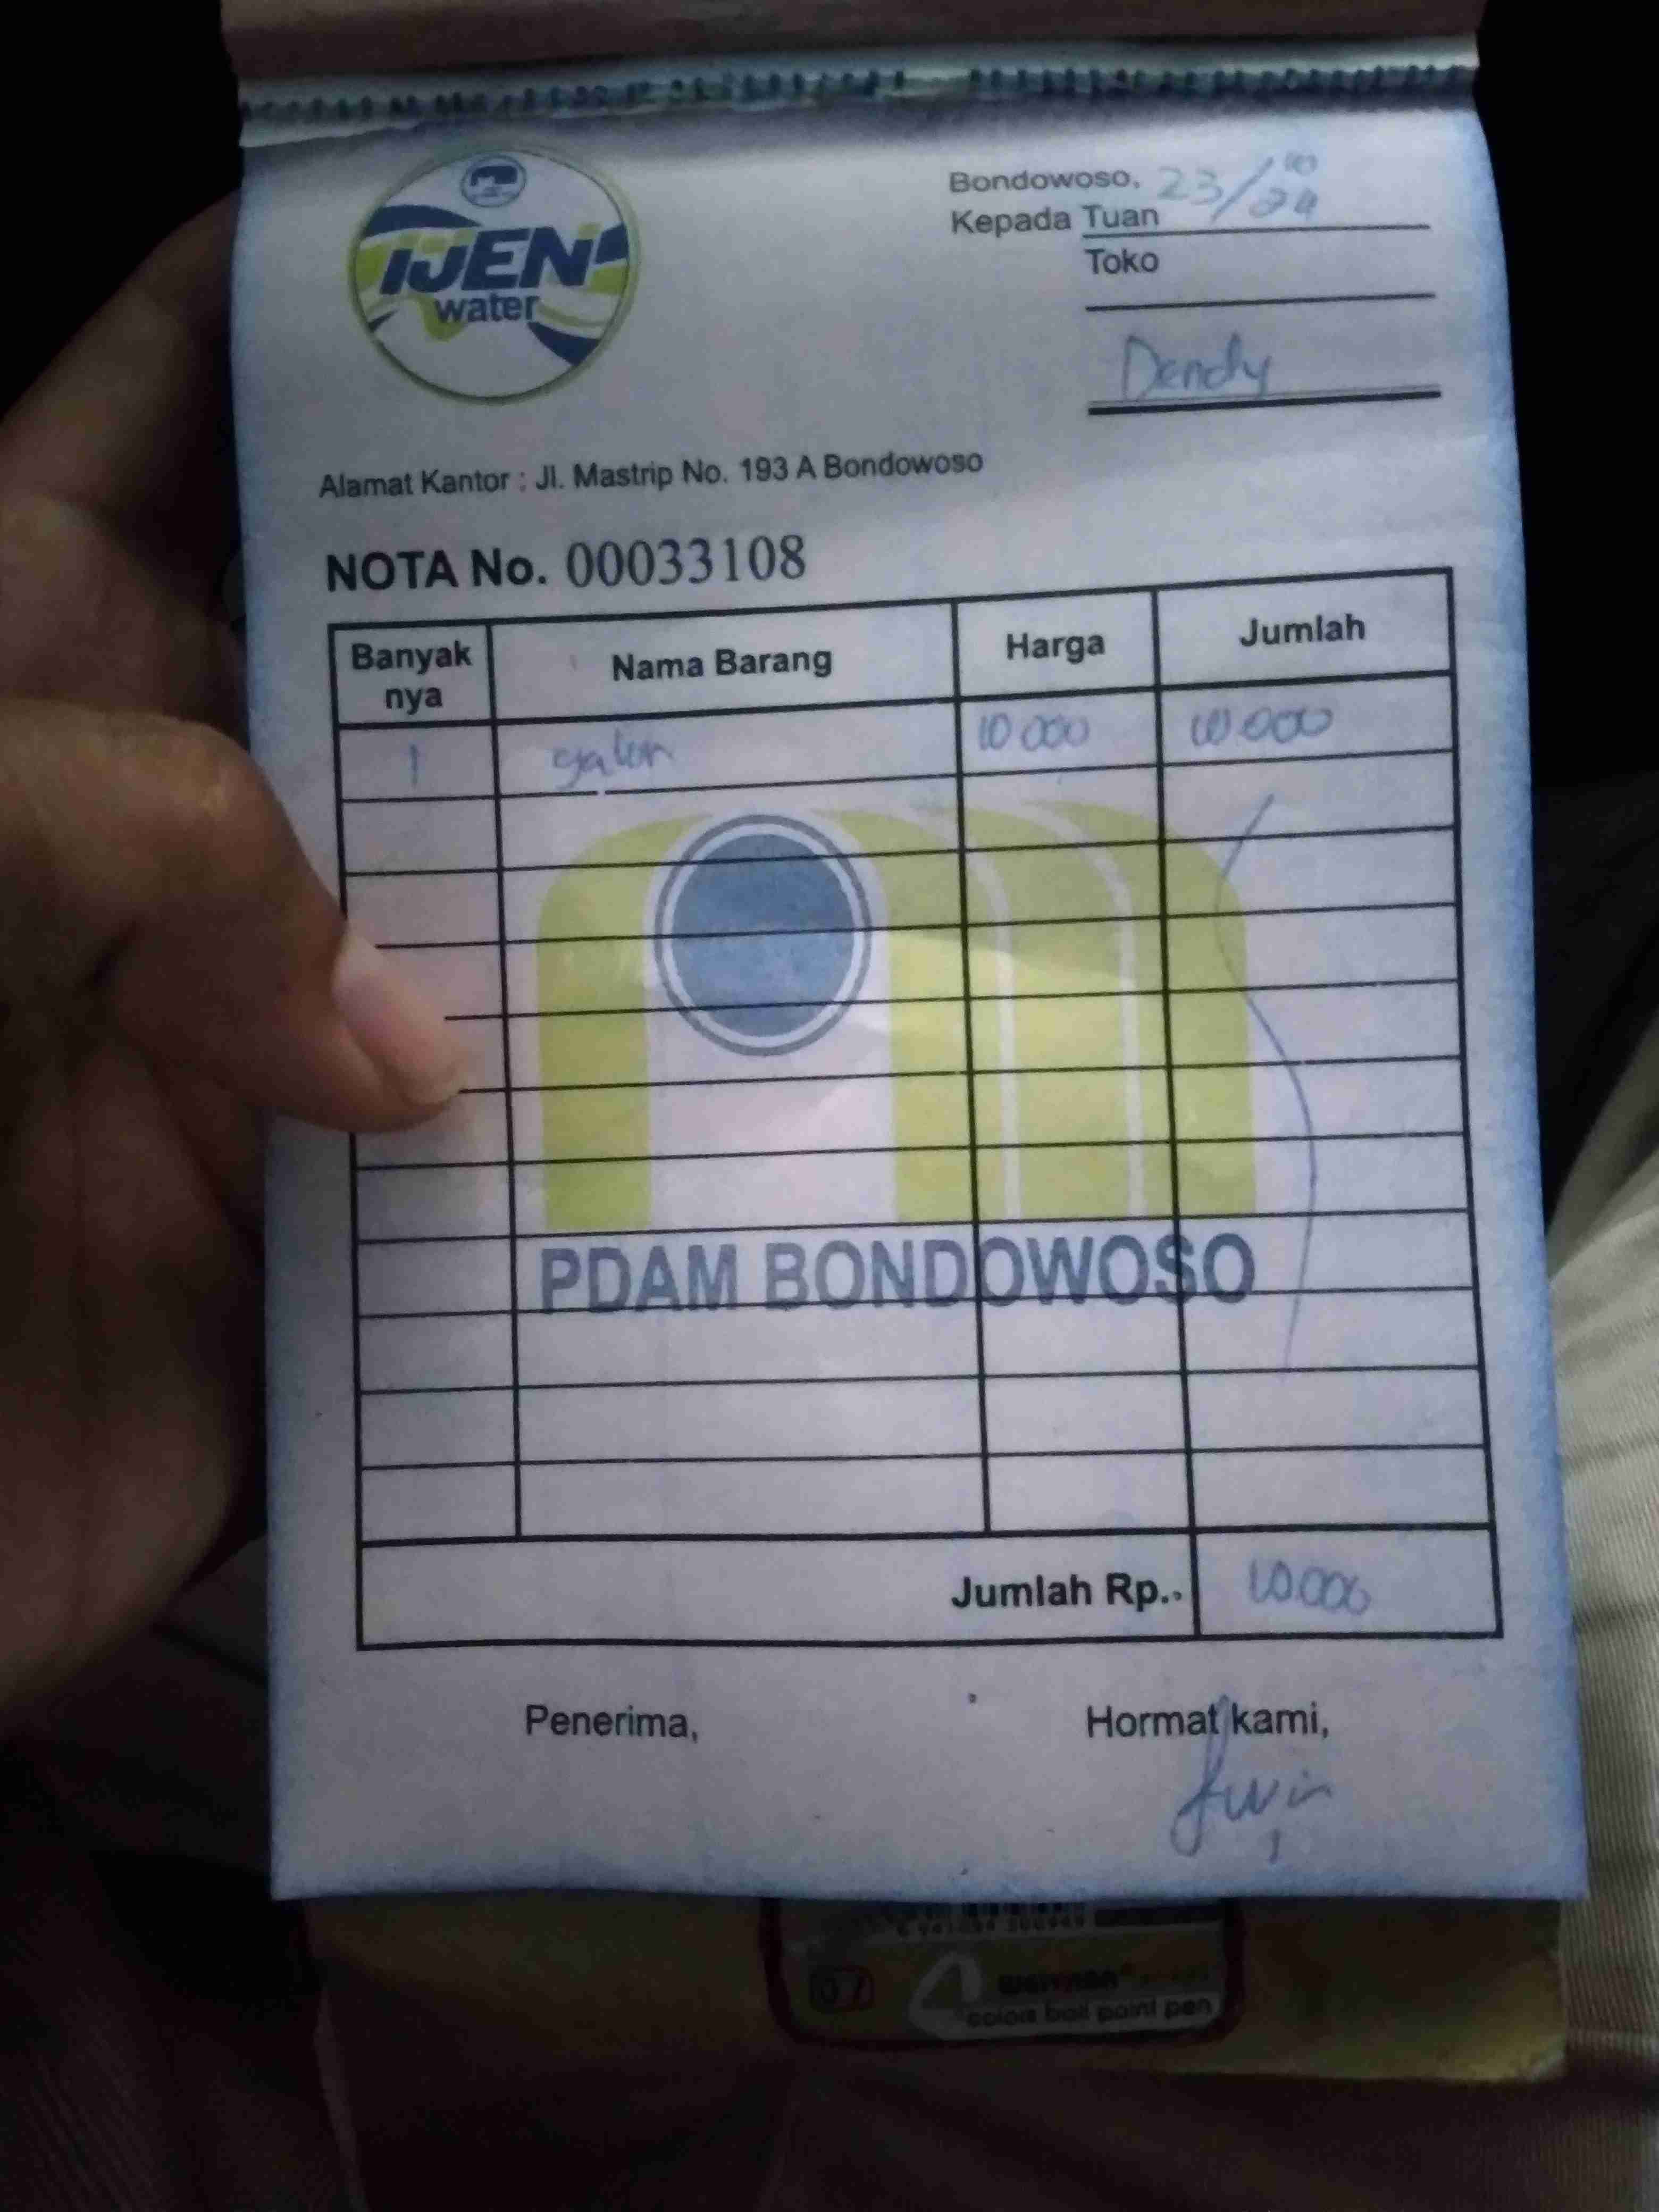 IJEN
water
Bondowoso, 23/10 24
Kepada Tuan
Toko
Dendy
Alamat Kantor : Jl. Mastrip No. 193 A Bondowoso
NOTA No. 00033108
Banyak nya Nama Barang Harga Jumlah
1 galon 10 000 10.000
PDAM BONDOWOSO
Jumlah Rp.. 10.000
Penerima, Hormat kami,
0.7
color ball point pen